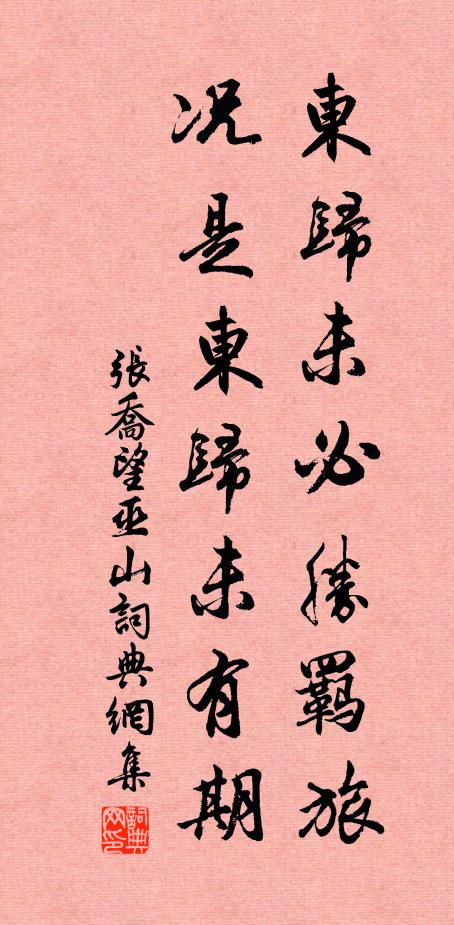 東歸未必勝羇旅
況是東歸未有期
張喬望巫山詞典網集
詞典网印